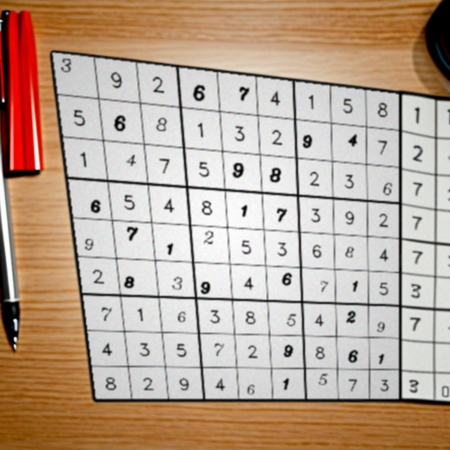 3 9 2 6 7 4 1 5 8 1
5 6 8 1 3 2 9 4 7 2
1 4 7 5 9 8 2 3 6 7
6 5 4 8 1 7 3 9 2 7
9 7 1 2 5 3 6 8 4 7
2 8 3 9 4 6 7 1 5 3
7 1 6 3 8 5 4 2 9 7
4 3 5 7 2 9 8 6 1
8 2 9 4 6 1 5 7 3 3